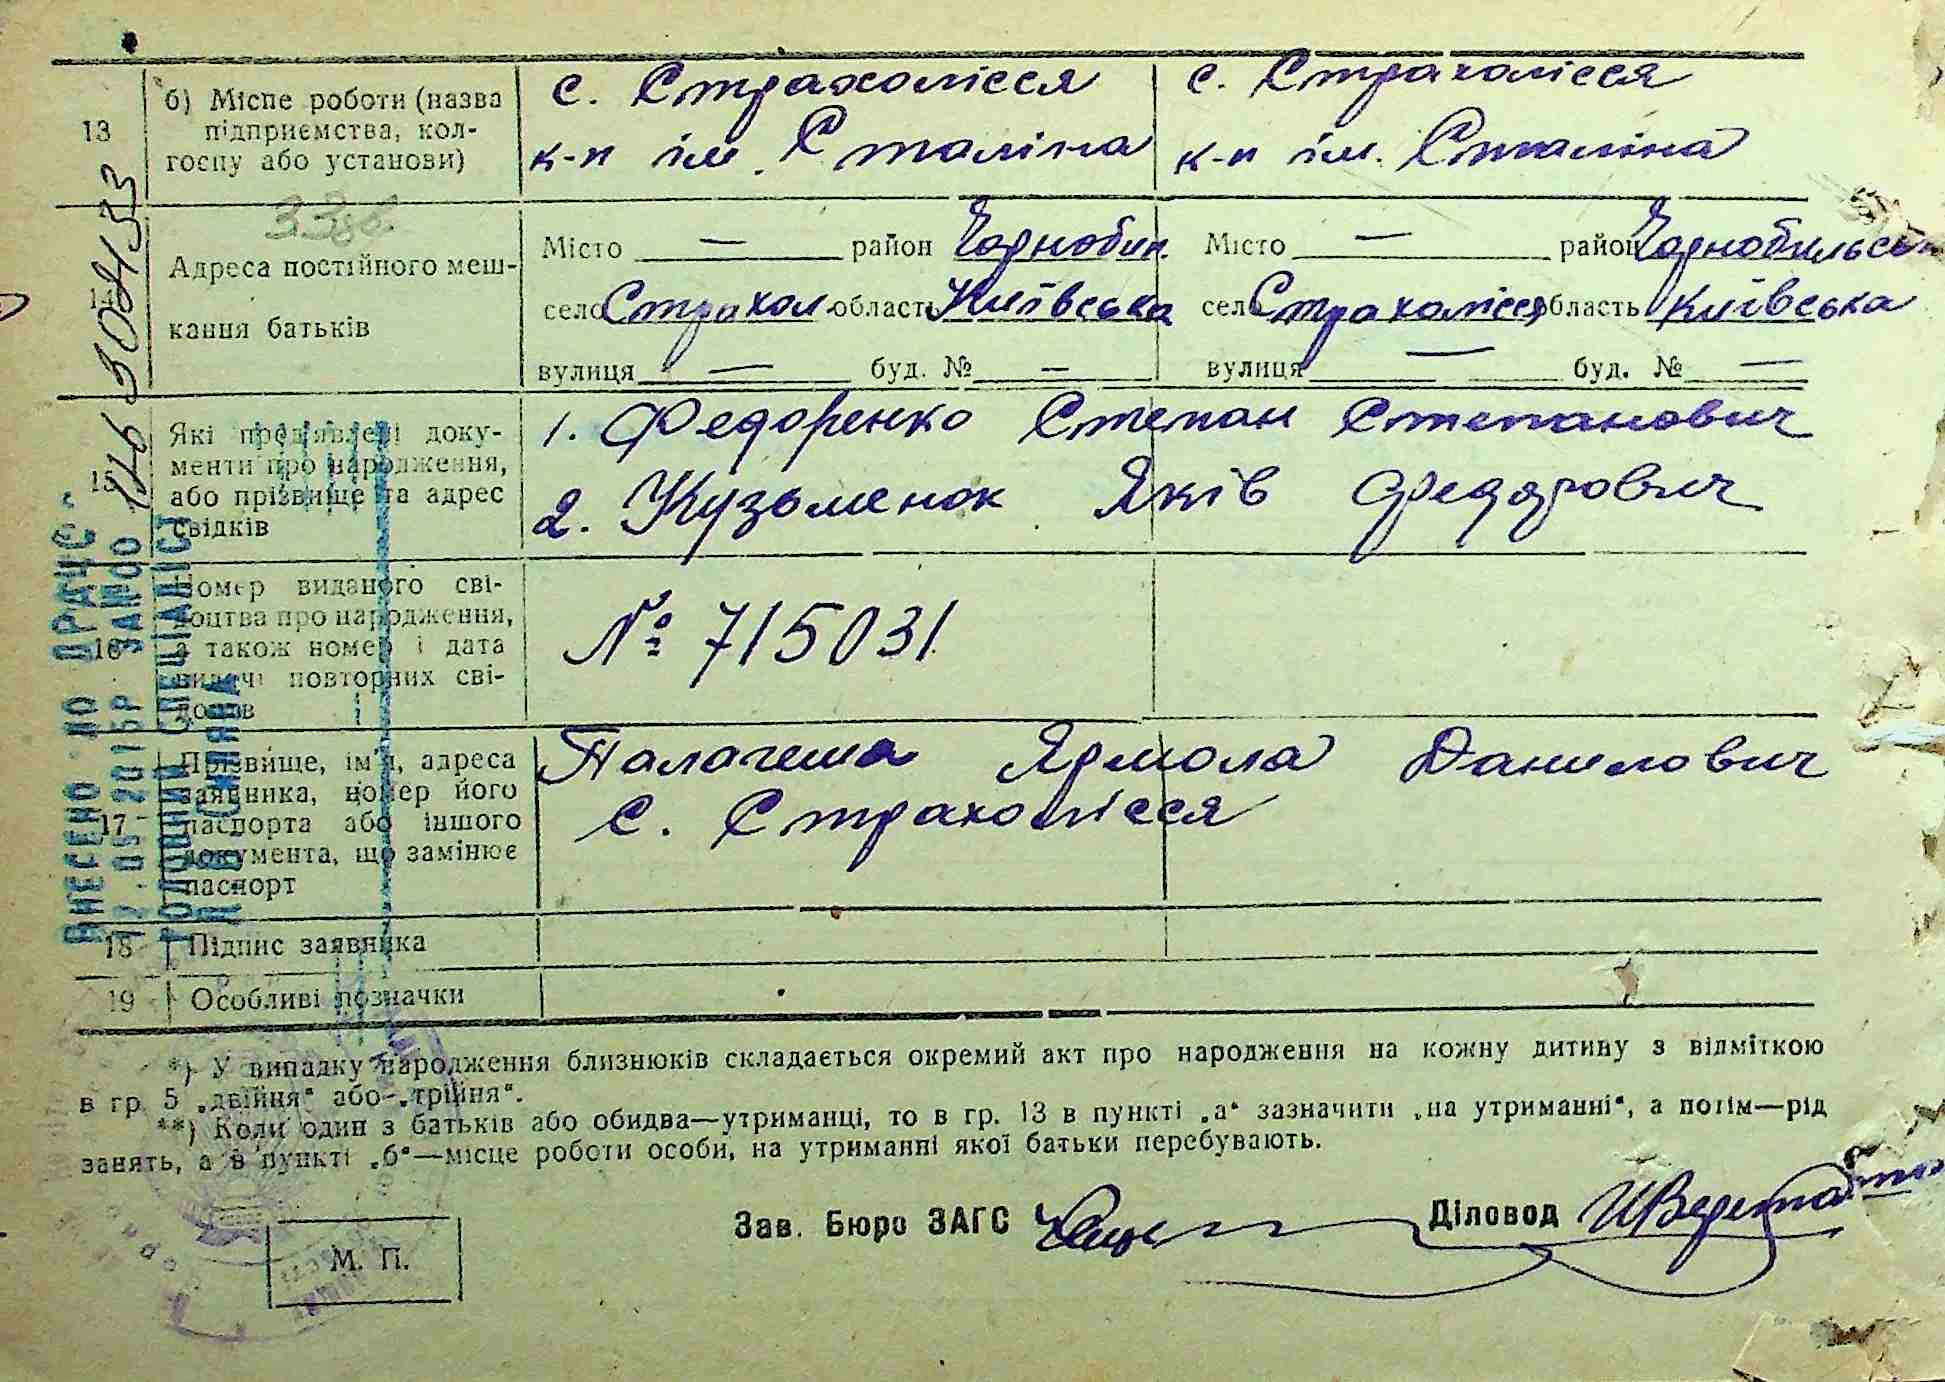 13 б) Місце роботи (назва підприємства, колгоспу або установи)
с. Страхолісся
к-п ім. Сталіна
с. Страхолісся
к-п ім. Сталіна
14 Адреса постійного мешкання батьків
Місто — район Чорнобил.
село Страхол. область Київська
вулиця — буд. № —
Місто — район Чорнобильськ
село Страхолісся область Київська
вулиця — буд. № —
15 Які пред'явлені документи про народження, або прізвище та адрес свідків
1. Федоренко Степан Степанович
2. Кузьменок Яків Федорович
16 Номер виданого свідоцтва про народження, а також номер і дата видачі повторних свідоцтв
№ 715031
17 Прізвище, ім'я, адреса заявника, номер його паспорта або іншого документа, що замінює паспорт
Палагеша Ярмола Данилович
с. Страхолісся
18 Підпис заявника
19 Особливі позначки
*) У випадку народження близнюків складається окремий акт про народження на кожну дитину з відміткою
в гр. 5 „двійня“ або „трійня“.
**) Коли один з батьків або обидва—утриманці, то в гр. 13 в пункті „а“ зазначити „на утриманні“, а потім—рід
занять, а в пункті „б“—місце роботи особи, на утриманні якої батьки перебувають.
Зав. Бюро ЗАГС
Діловод
М. П.
ВНЕСЕНО ДО ДРАЦС
ГОЛОВНИЙ СПЕЦІАЛІСТ